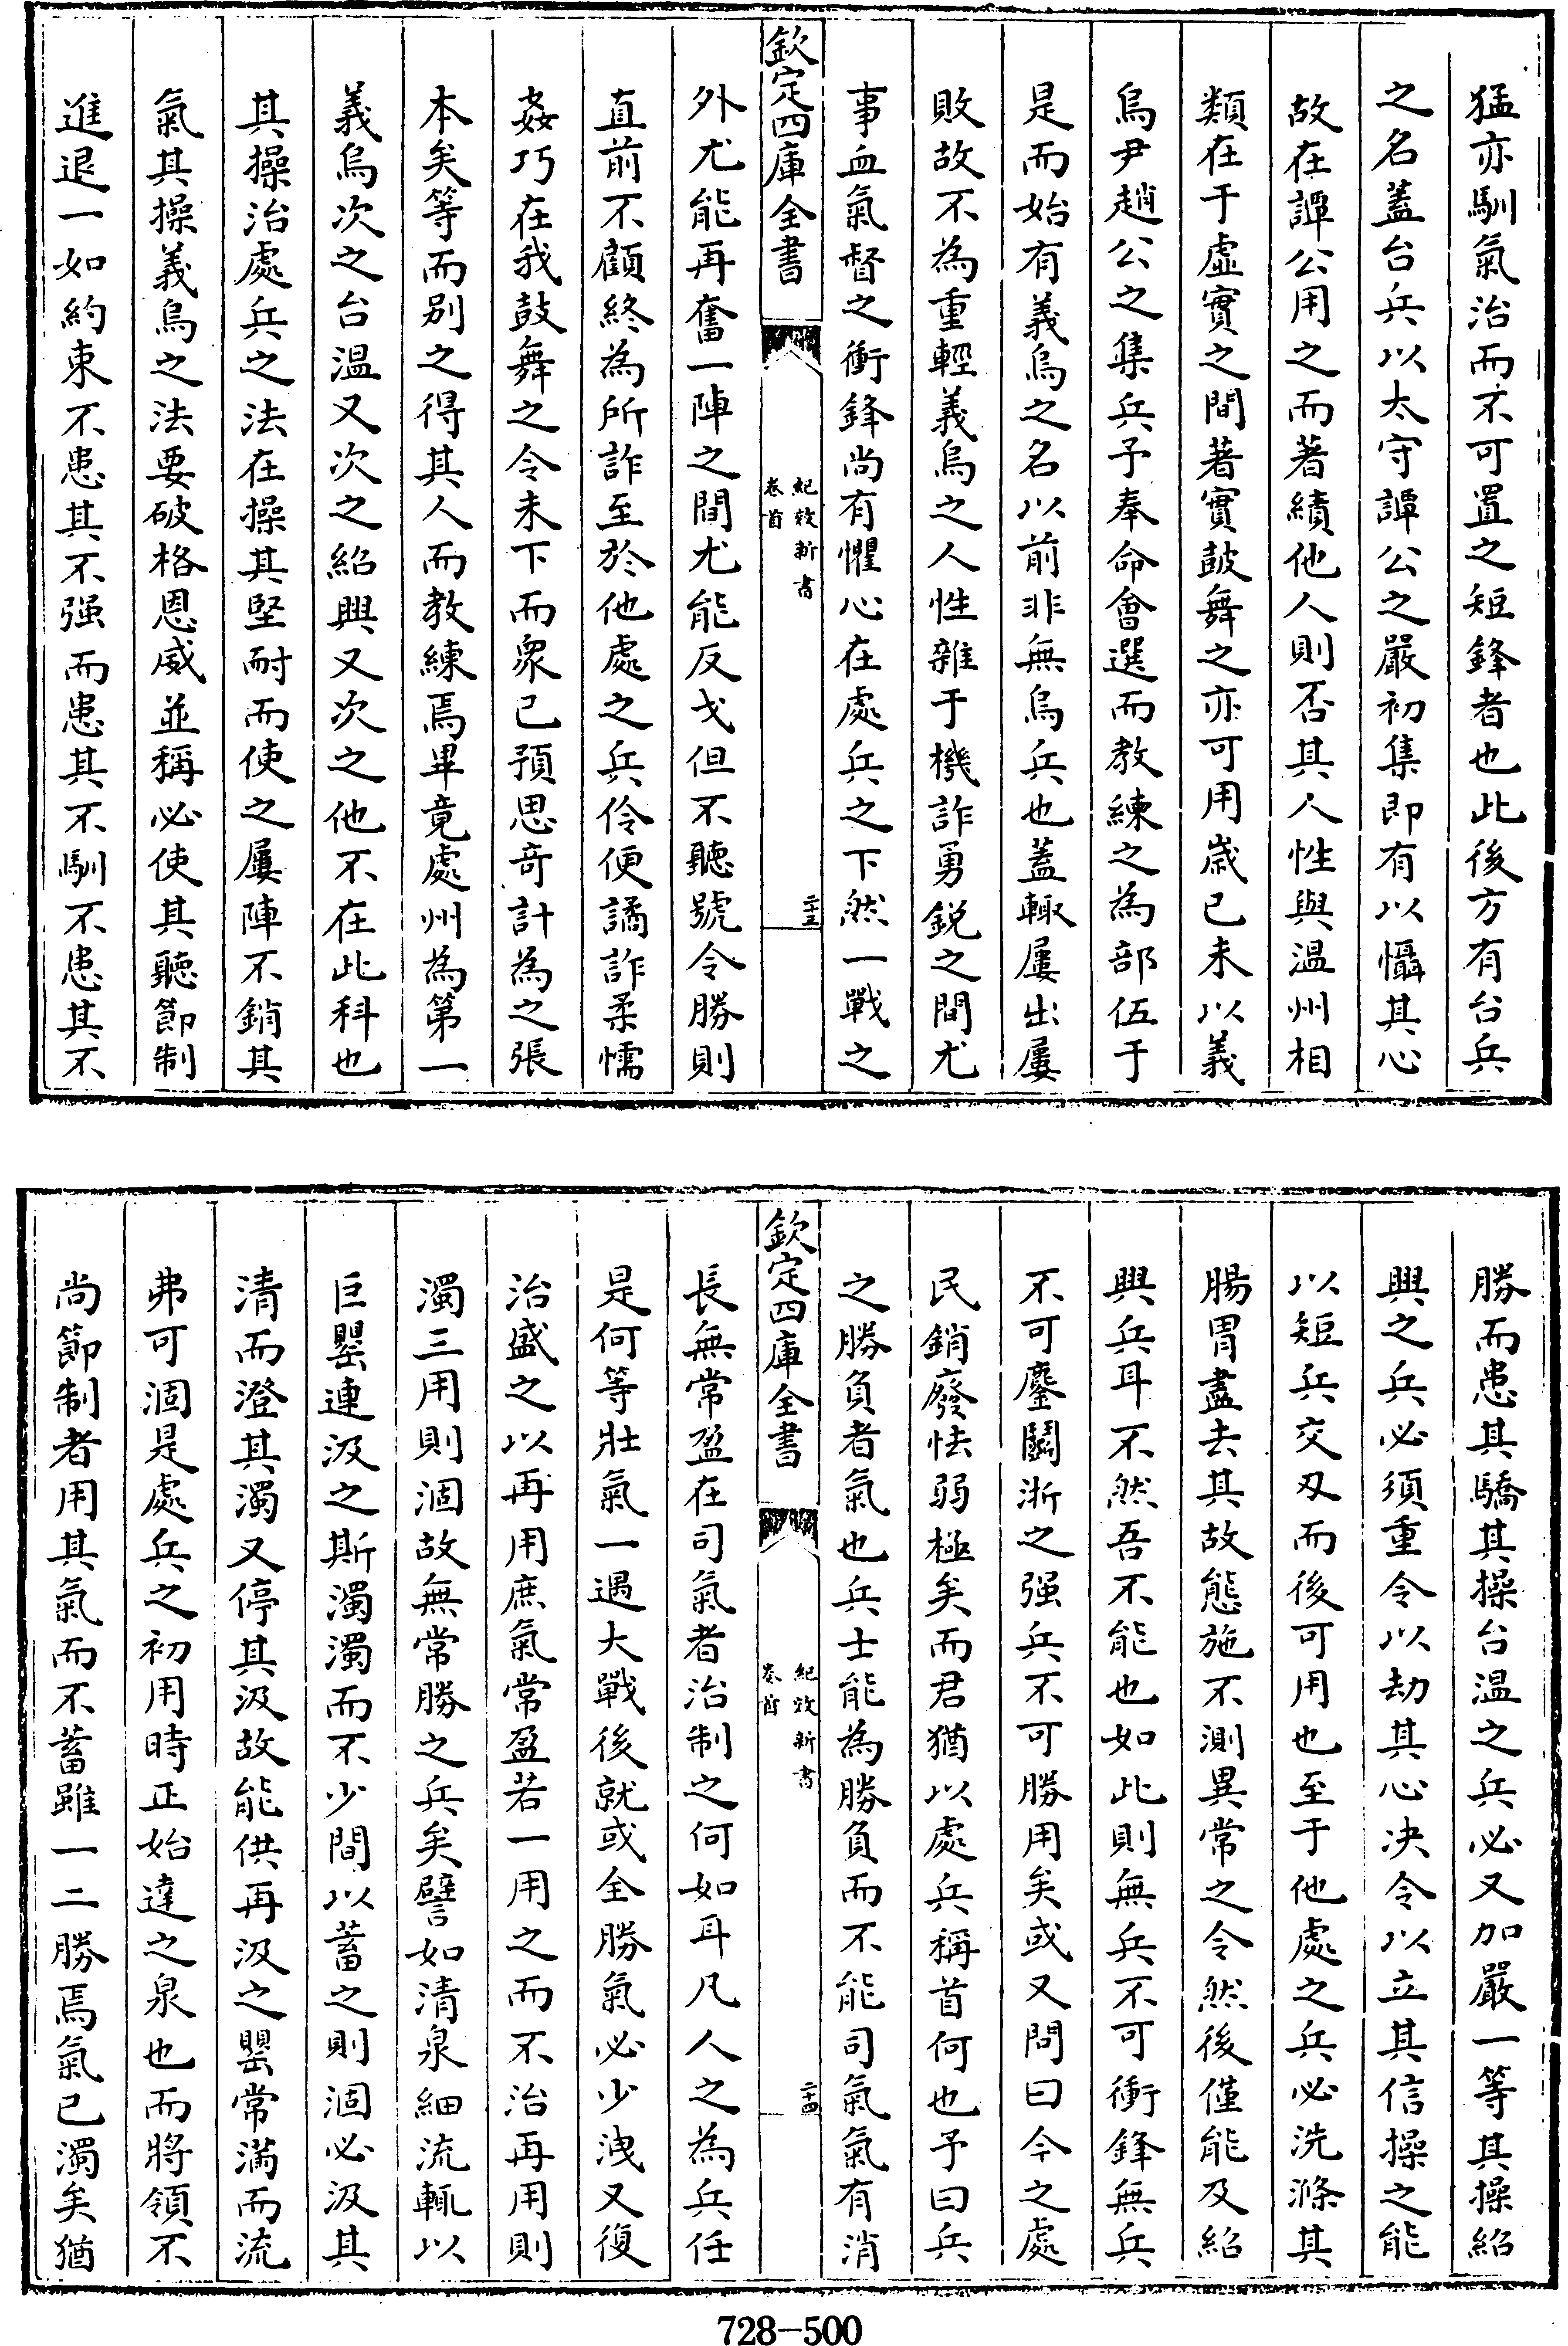 猛亦馴氣治而不可置之短鋒者也此後方有台兵
之名蓋台兵以太守譚公之嚴初集即有以懾其心
故在譚公用之而著績他人則否其人性與温州相
類在于虛實之間著實鼓舞之亦可用歲已未以義
烏尹趙公之集兵予奉命會選而教練之為部伍于
是而始有義烏之名以前非無烏兵也蓋輙屢出屢
敗故不為重輕義烏之人性雜于機詐勇鋭之間尤
事血氣督之衝鋒尚有懼心在處兵之下然一戰之
欽定四庫全書
紀效新書
卷首
二十三
外尤能再奮一陣之間尤能反戈但不聽號令勝則
直前不顧終為所詐至於他處之兵伶便譎詐柔懦
姦巧在我鼓舞之令未下而衆已預思奇計為之張
本矣等而别之得其人而教練焉畢竟處州為第一
義烏次之台温又次之紹興又次之他不在此科也
其操治處兵之法在操其堅耐而使之屢陣不銷其
氣其操義烏之法要破格恩威並稱必使其聽節制
進退一如約束不患其不强而患其不馴不患其不
勝而患其驕其操台温之兵必又加嚴一等其操紹
興之兵必須重令以劫其心决令以立其信操之能
以短兵交刄而後可用也至于他處之兵必洗滌其
腸胃盡去其故態施不測異常之令然後僅能及紹
興兵耳不然吾不能也如此則無兵不可衝鋒無兵
不可鏖鬭浙之强兵不可勝用矣或又問曰今之處
民銷廢怯弱極矣而君猶以處兵稱首何也予曰兵
之勝負者氣也兵士能為勝負而不能司氣氣有消
欽定四庫全書
紀效新書
卷首
二十四
長無常盈在司氣者治制之何如耳凡人之為兵任
是何等壯氣一遇大戰後就或全勝氣必少洩又復
治盛之以再用庶氣常盈若一用之而不治再用則
濁三用則涸故無常勝之兵矣譬如清泉細流輒以
巨罌連汲之斯濁濁而不少間以蓄之則涸必汲其
清而澄其濁又停其汲故能供再汲之罌常滿而流
弗可涸是處兵之初用時正始達之泉也而將領不
尚節制者用其氣而不蓄雖一二勝焉氣已濁矣猶
728-500